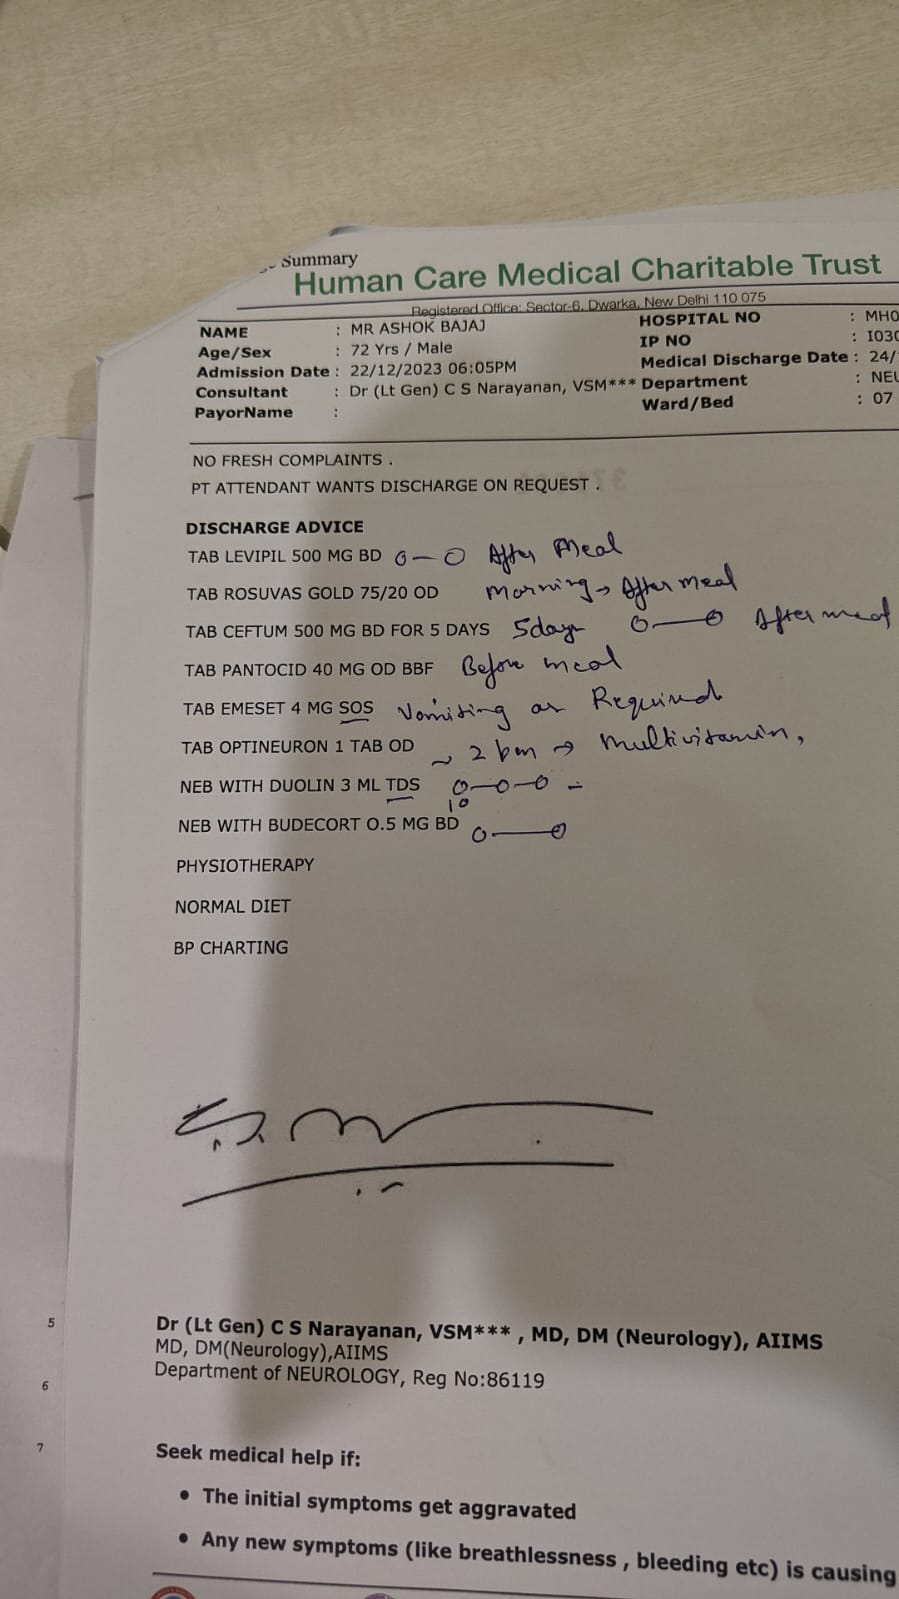 Summary
Human Care Medical Charitable Trust
Registered Office: Sector-6, Dwarka, New Delhi 110 075
NAME : MR ASHOK BAJAJ HOSPITAL NO : MH0
Age/Sex : 72 Yrs / Male IP NO : I030
Admission Date : 22/12/2023 06:05PM Medical Discharge Date : 24/
Consultant : Dr (Lt Gen) C S Narayanan, VSM*** Department : NEU
PayorName : Ward/Bed : 07
NO FRESH COMPLAINTS .
PT ATTENDANT WANTS DISCHARGE ON REQUEST .
DISCHARGE ADVICE
TAB LEVIPIL 500 MG BD 0—0 After Meal
TAB ROSUVAS GOLD 75/20 OD Morning → After meal
TAB CEFTUM 500 MG BD FOR 5 DAYS 5days 0—0 After meal
TAB PANTOCID 40 MG OD BBF Before meal
TAB EMESET 4 MG SOS Vomiting as Required
TAB OPTINEURON 1 TAB OD ~ 2 pm → Multivitamin,
NEB WITH DUOLIN 3 ML TDS 0—0—0 -
10
NEB WITH BUDECORT 0.5 MG BD 0—0
PHYSIOTHERAPY
NORMAL DIET
BP CHARTING
Dr (Lt Gen) C S Narayanan, VSM*** , MD, DM (Neurology), AIIMS
MD, DM(Neurology),AIIMS
Department of NEUROLOGY, Reg No:86119
5
6
7
Seek medical help if:
• The initial symptoms get aggravated
• Any new symptoms (like breathlessness , bleeding etc) is causing